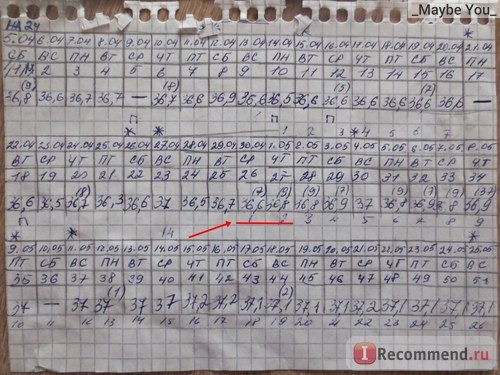 _Maybe You_
5.04 6.04 7.04 8.04 9.04 10.04 11.04 12.04 13.04 14.04 15.04 16.04 17.04 18.04 19.04 20.04 21.04
СБ ВС ПН ВТ СР ЧТ ПТ СБ ВС ПН ВТ СР ЧТ ПТ СБ ВС ПН
2 3 4 5 6 7 8 9 10 11 12 13 14 15 16 17
(9) (8) (5) (7)
36,8 36,6 36,7 36,7 — 36,7 36,6 36,9 35,6 36,5 36,6 36,6 36,6 36,6 36,6 36,6 —
22.04 23.04 24.04 25.04 26.04 27.04 28.04 29.04 30.04 1.05 2.05 3.05 4.05 5.05 6.05 7.05 8.05
ВТ СР ЧТ ПТ СБ ВС ПН ВТ СР ЧТ ПТ СБ ВС ПН ВТ СР ЧТ
18 19 20 21 22 23 24 25 26 27 28 29 30 31 32 33 34
(8) (7) (9) (9) (9) (7) (9)
36,6 36,5 36,7 36,3 36,6 37 36,5 36,7 36,6 36,8 36,8 36,9 37 36,8 36,9 36,8 36,9
1 2 3 4 5 6 7 8 9
14
9.05 10.05 11.05 12.05 13.05 14.05 15.05 16.05 17.05 18.05 19.05 20.05 21.05 22.05 23.05 24.05 25.05
ПТ СБ ВС ПН ВТ СР ЧТ ПТ СБ ВС ПН ВТ СР ЧТ ПТ СБ ВС
35 36 37 38 39 40 41 42 43 44 45 46 47 48 49 50 51
(1) (2)
37 — 37 37 37 37 37,2 37,2 37,1 37,1 37,1 37,1 37,2 37,1 37,1 37,1 37,1
10 11 12 13 14 15 16 17 18 19 20 21 22 23 24 25 26
I Recommend.ru